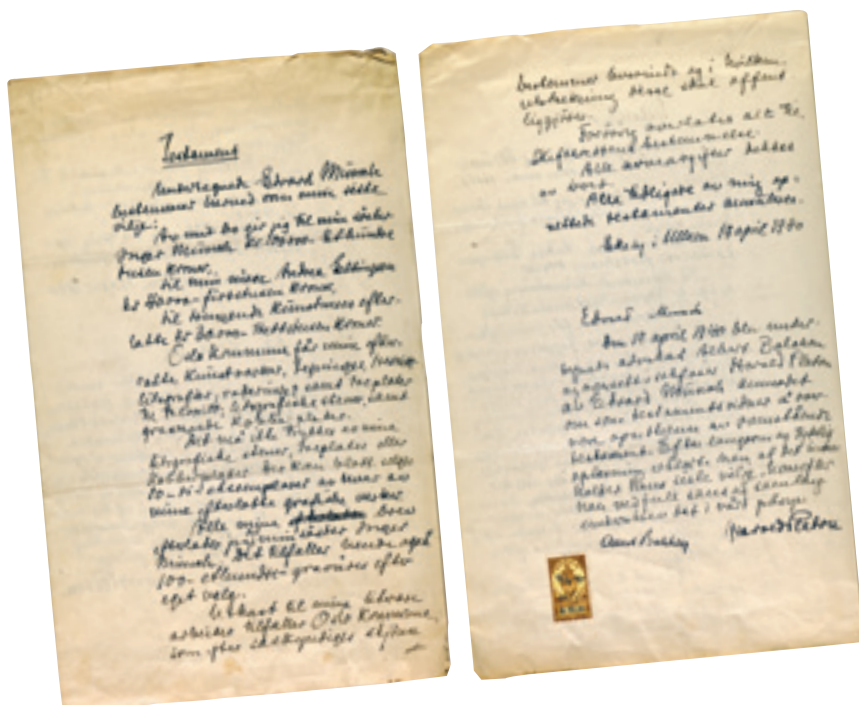 Testament
Undertegnede Edvard Munch
bestemmer herved som min siste
vilje:
Av mine
Inger Munch kr 100000- Ethundre
tusen kroner.
Til min niese Andrea Ellingsen
kr 40000- førtitusen kroner
Til trengende Kunstnere efter-
lates kr 30000 trettitusen kroner
Oslo Kommune får mine efter-
latte Kunstverker, tegninger, tresnitt
litografier, raderinger samt treplater
til tresnitt, litografiske stener, samt
graverede Kobberplater.
Det må ikke trykkes av mine
litografiske stener, treplater eller
Kobberplater. Der kan
eksemplarer av hver av
mine efterlatte grafiske verker
Alle mine breve
efterlates min søster Inger
Munch. Det tilfaller hende også
100- ethundre- gravurer efter
eget valg.
Utkast til mine literære
arbeider tilfaller Oslo Kommune,
som efter sakkyndiges skjønn
bestemmer hvorvidt og i hvilken
utstrekning disse skal offent
liggjøres.
Forøvrig overlates alt til
Skifterettens bestemmelse.
Alle arveavgifter dekkes
av boet.
Alle tidligere av mig op-
rettede testamenter annulleres.
Ekely i Ullern 18 april 1940
Edvard Munch
Den 18 april 1940 blev under-
tegnede advokat
Harald Platou
av Edvard Munch anmodet
om som testamentsvidner å over
være oprettelsen av ovenstående
testament. Efter langsom og tydelig
oplesning
hans siste vilje, hvorefter
han vedføiet sannsamling
i vårt påsyn.
Harald Platou